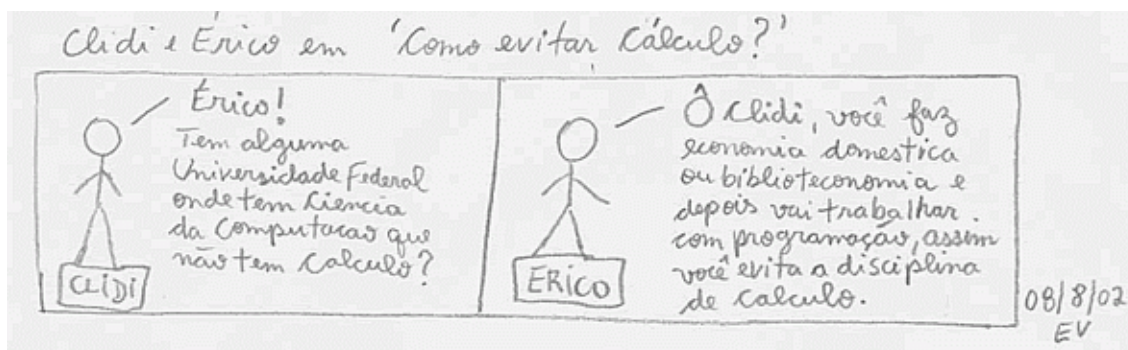 Clidi e Érico em 'Como evitar Cálculo?'
Érico!
Tem alguma
Universidade Federal
onde tem Ciencia
da Computacao que
não tem Calculo?
CLIDI
Ô Clidi, você faz
economia domestica
ou biblioteconomia e
depois vai trabalhar
com programação, assim
você evita a disciplina
de Calculo.
ERICO
08/8/02
EV